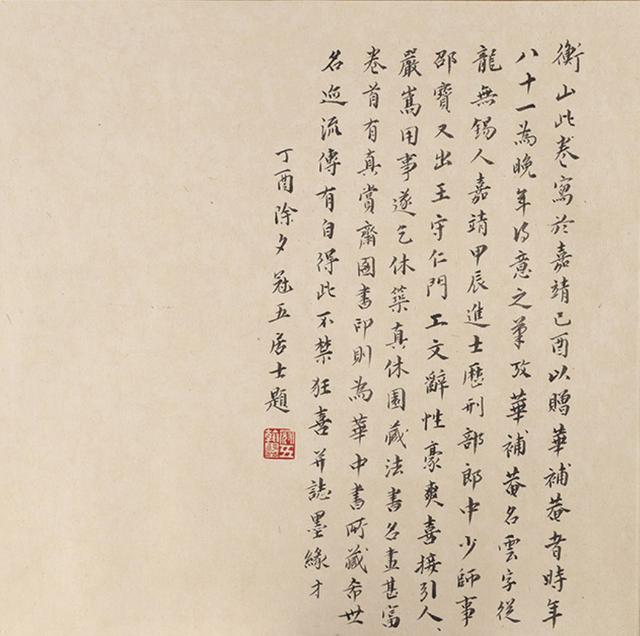 衡山此卷寫於嘉靖己酉以贈華補菴者時年
八十一為晚年得意之筆攷華補菴名雲字從
龍無錫人嘉靖甲辰進士歷刑部郎中少師事
邵寶又出王守仁門工文辭性豪爽喜接引人、
嚴嵩用事遂乞休築真休園藏法書名畫甚富
卷首有真賞齋圖書印則為華中書所藏希世
名迹流傳有自得此不禁狂喜并誌墨緣才
丁酉除夕冠五居士題